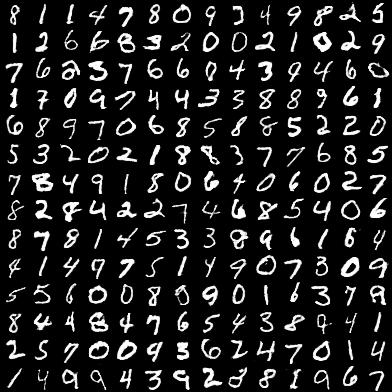 8 1 1 4 7 8 0 9 3 4 9 8 2 5
1 2 6 6 8 3 2 0 0 2 1 0 2 9
7 6 2 3 7 6 6 0 4 3 9 4 6 0
1 7 0 9 7 4 4 3 3 8 8 9 6 1
6 8 9 7 0 6 8 5 8 8 5 2 2 0
5 3 2 0 2 1 8 8 3 7 7 6 8 5
7 8 4 9 1 8 0 6 4 0 6 0 2 7
8 2 8 4 2 2 7 4 6 8 5 4 0 6
8 7 8 1 4 5 3 3 8 9 6 1 6 4
4 1 4 9 7 5 1 4 9 0 7 3 0 9
5 5 6 0 0 8 0 9 0 1 6 3 7 8
8 4 4 8 4 7 6 5 4 3 8 9 4 1
2 5 7 0 0 9 3 6 2 4 7 0 1 4
1 4 9 9 4 3 9 2 2 8 1 9 6 7